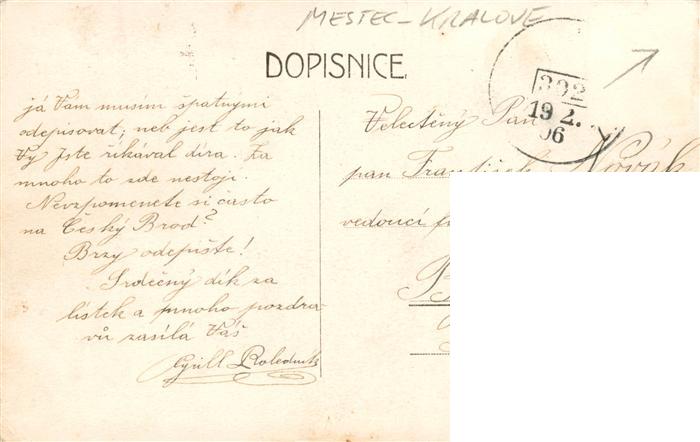 MESTEC-KRALOVE
DOPISNICE
392
19 2.
06
já Vám musím špatnými
odepisovat, neb jest to jak
Vy Jste říkával díra. Za
mnoho to zde nestojí.
Nevzpomenete si často
na Český Brod?
Brzy odepište!
Srdečný dík za
lístek a mnoho pozdra-
vů zasílá Váš
Cyrill
Velectěný Pán
pan František Novák
vedoucí